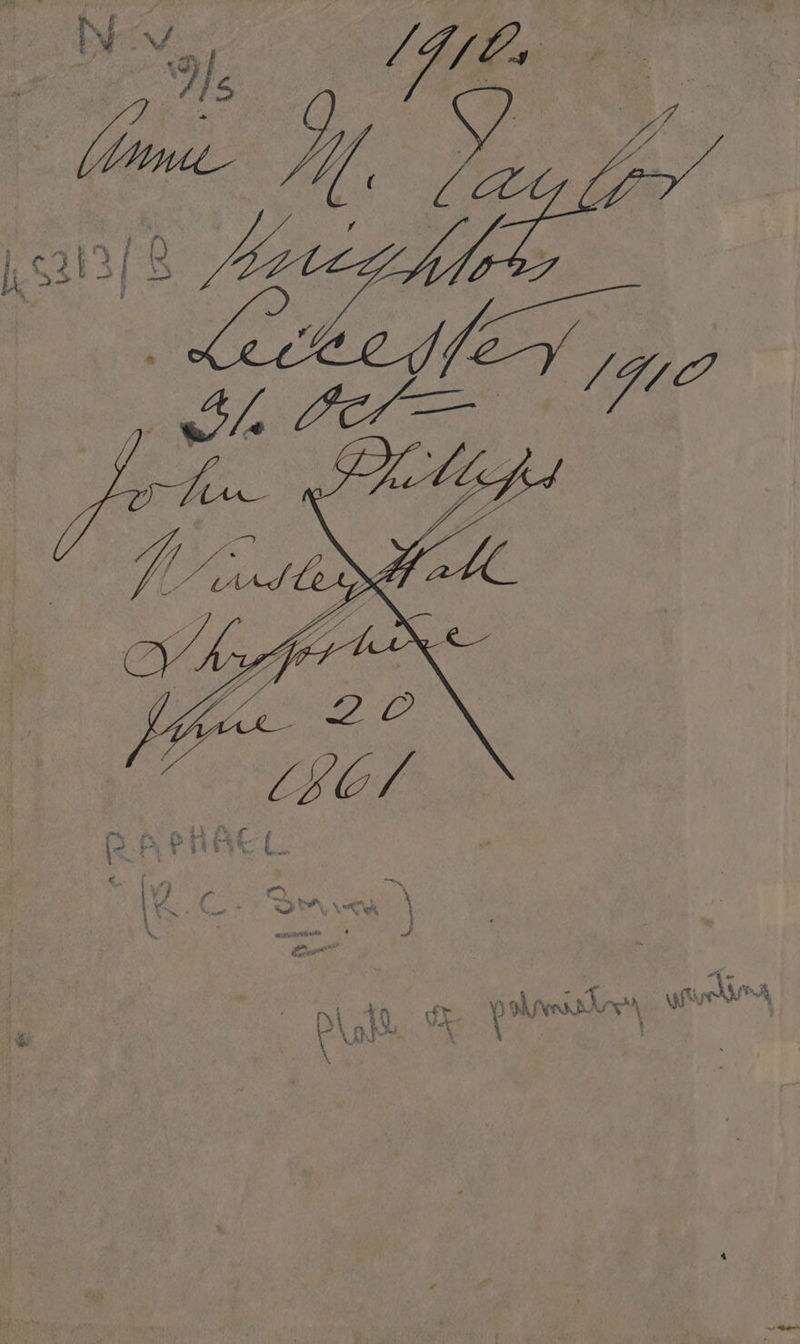 N V
9/s 1910.
Annie M. Taylor
Knighton
Leicester 1910
31. Oct
John Phillips
Winsley Hall
Shropshire
June 20
1861
RAPHAEL
(R. C. Smith)
Plate of palmistry wanting